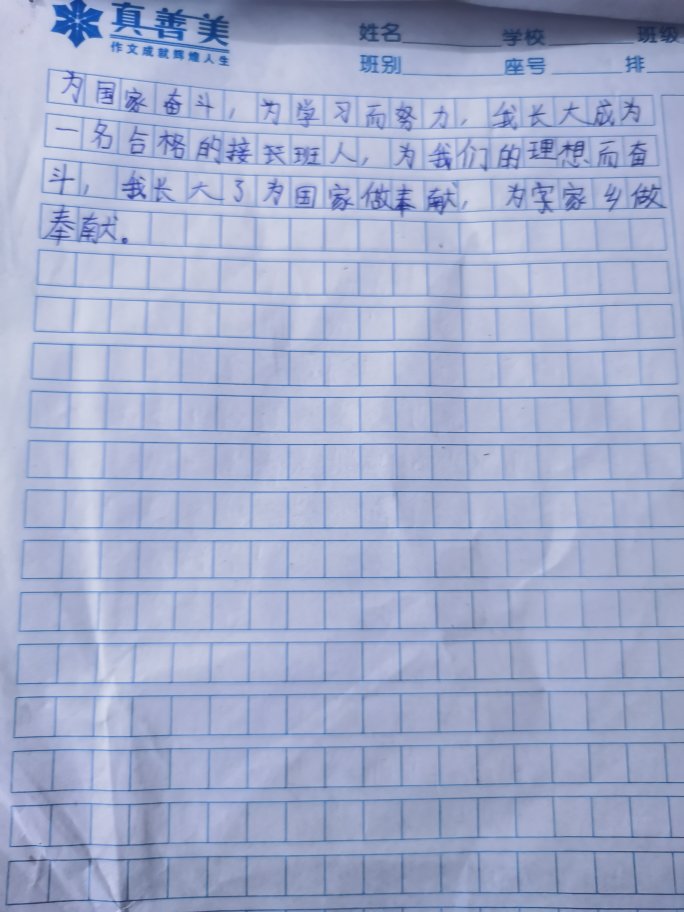 真善美
作文成就辉煌人生
姓名 学校 班级
班别 座号 排
为国家奋斗，为学习而努力，我长大成为
一名合格的接班人，为我们的理想而奋
斗，我长大了为国家做奉献，为家乡做
奉献。